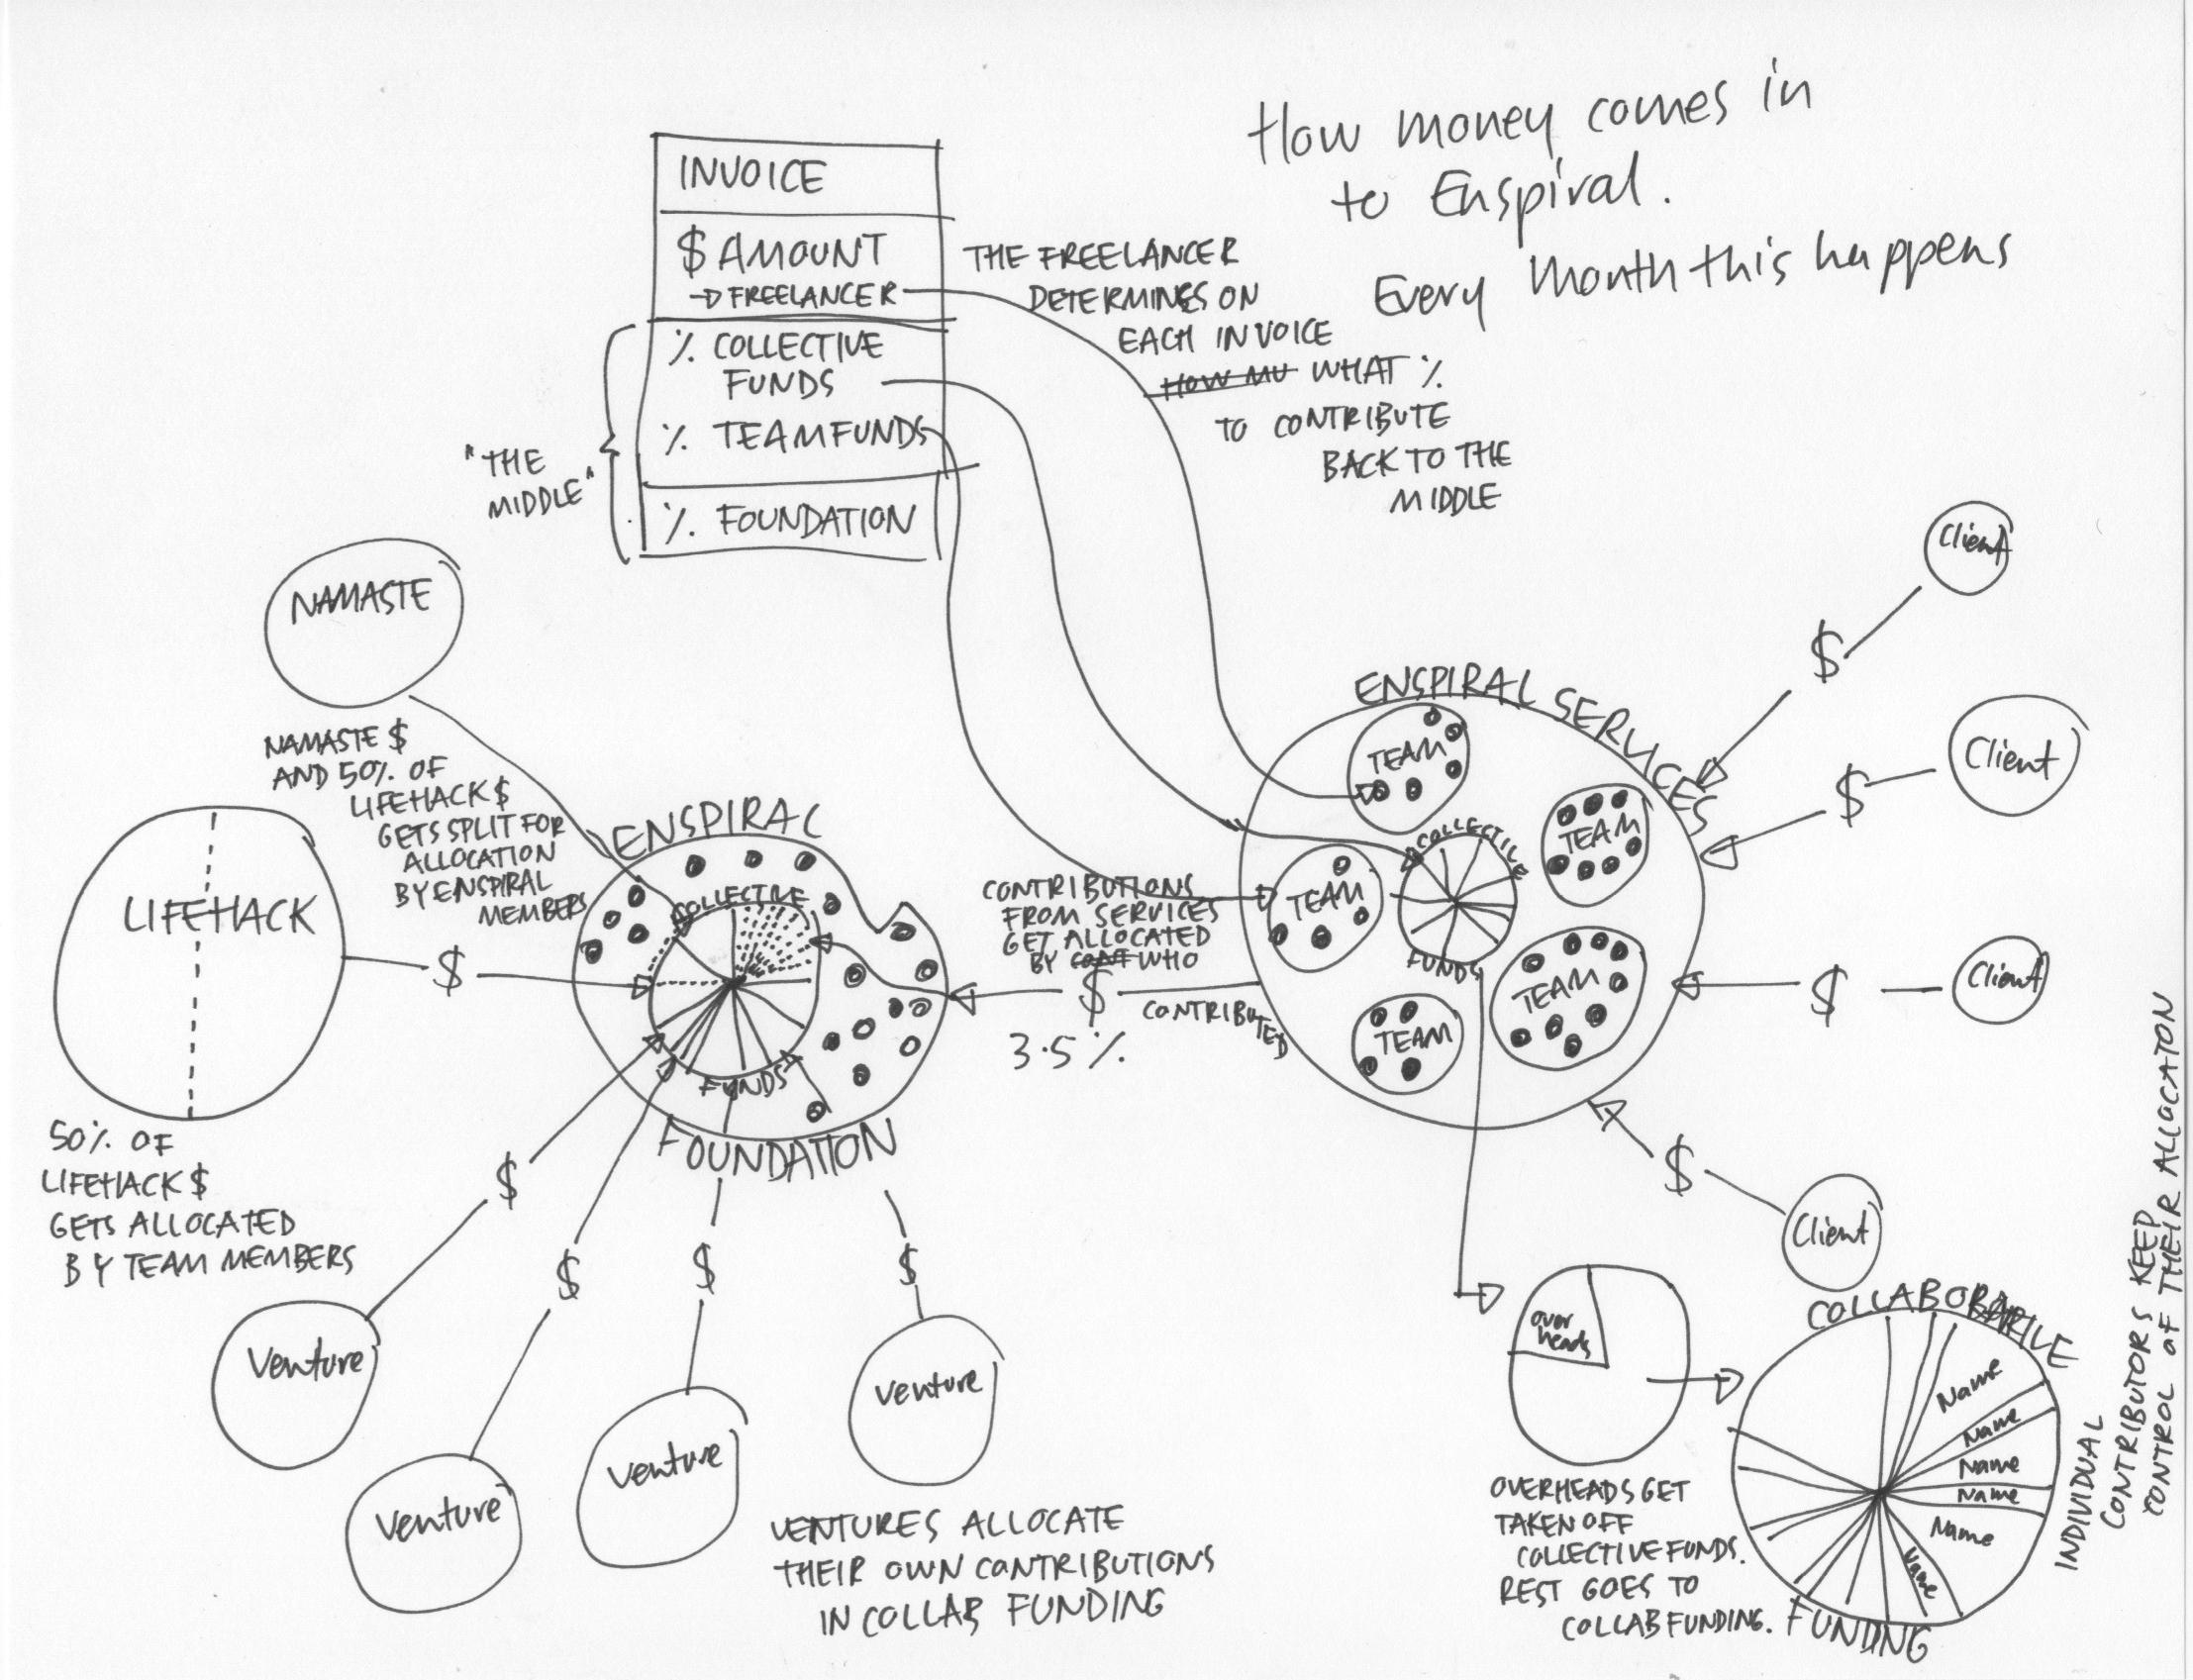 How money comes in
to Enspiral.
Every Month this happens
INVOICE
$ AMOUNT
→ FREELANCER
% COLLECTIVE
FUNDS
% TEAM FUNDS
% FOUNDATION
"THE
MIDDLE"
THE FREELANCER
DETERMINES ON
EACH INVOICE
HOW MU WHAT %
TO CONTRIBUTE
BACK TO THE
MIDDLE
NAMASTE
NAMASTE $
AND 50% OF
LIFEHACK $
GETS SPLIT FOR
ALLOCATION
BY ENSPIRAL
MEMBERS
LIFEHACK
$
50% OF
LIFEHACK $
GETS ALLOCATED
BY TEAM MEMBERS
ENSPIRAL
COLLECTIVE
FUNDS
FOUNDATION
CONTRIBUTIONS
FROM SERVICES
GET ALLOCATED
BY WHO
$ CONTRIBUTED
3.5%
ENSPIRAL SERVICES
TEAM
TEAM
TEAM
TEAM
TEAM
COLLECTIVE
FUNDS
Client
$
Client
$
Client
$
Client
$
$
$
$
$
Venture
Venture
Venture
Venture
VENTURES ALLOCATE
THEIR OWN CONTRIBUTIONS
IN COLLAB FUNDING
over
heads
OVERHEADS GET
TAKEN OFF
COLLECTIVE FUNDS.
REST GOES TO
COLLAB FUNDING.
COLLABORATIVE
Name
Name
Name
Name
Name
Name
FUNDING
INDIVIDUAL
CONTRIBUTORS KEEP
CONTROL OF THEIR ALLOCATON